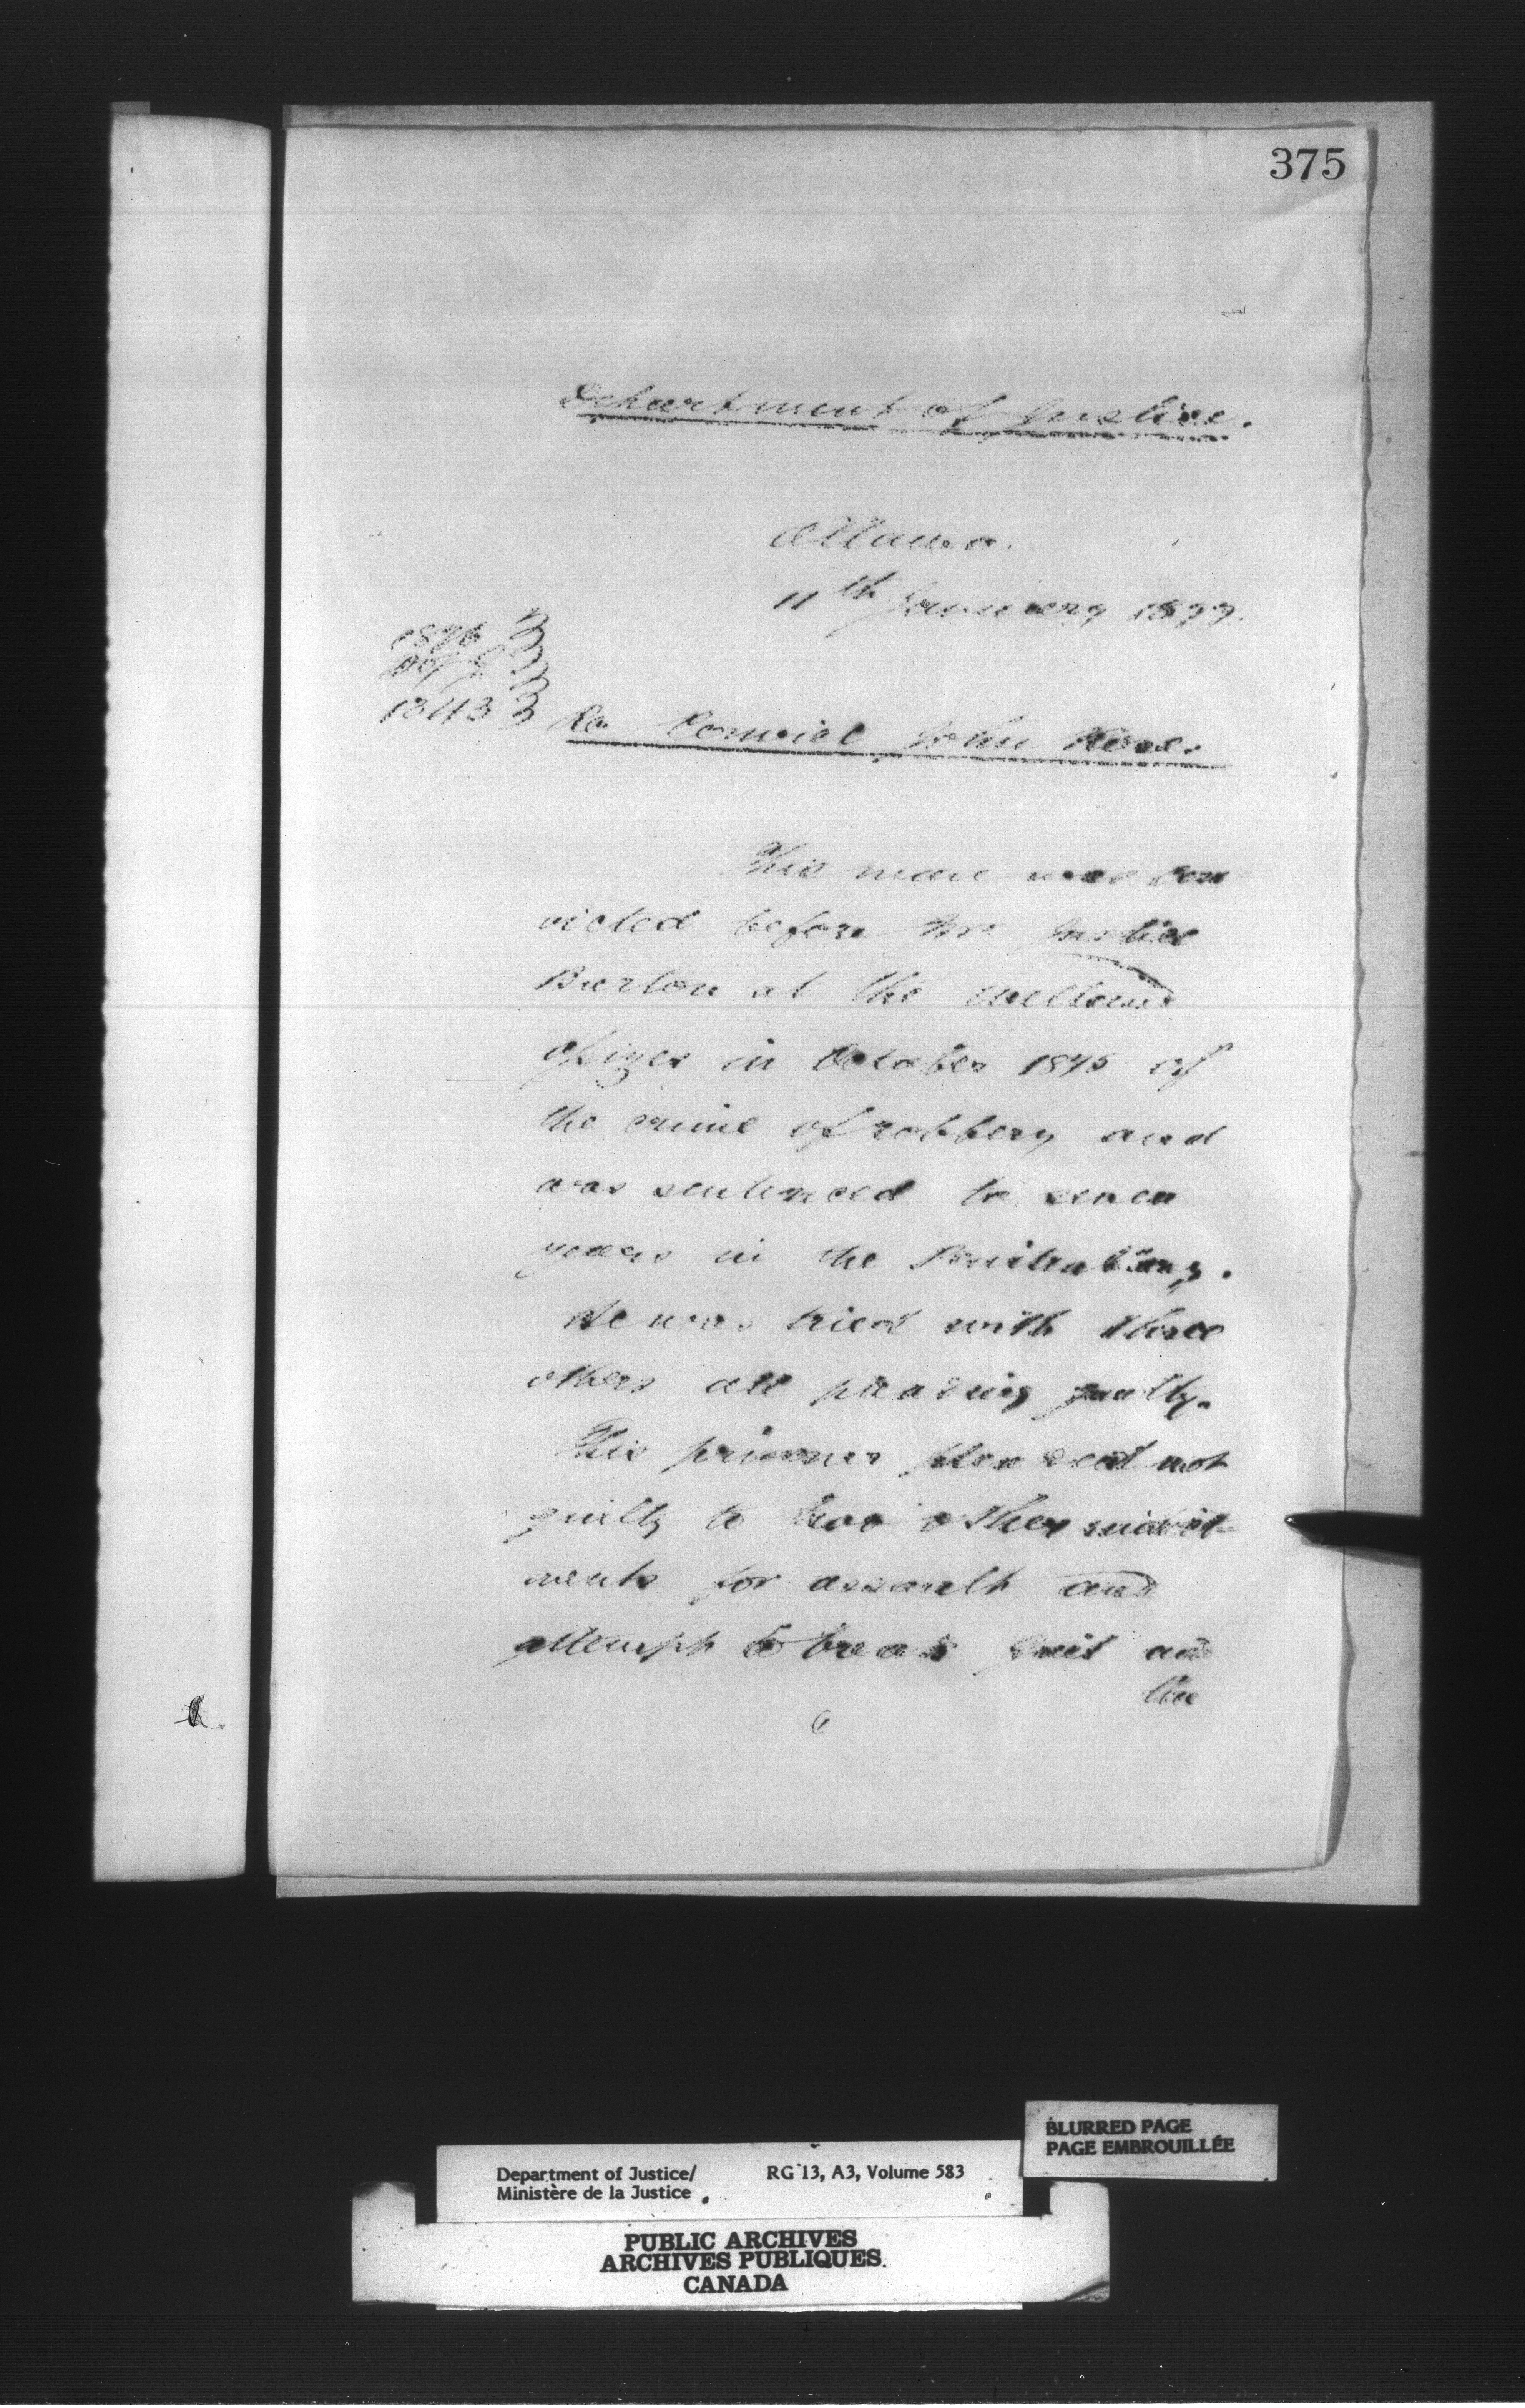 375
Department of Justice.
Ottawa.
11th January 1877.
1876
1343
Re Convict John Rose.
This man was con
victed before Mr Justice
Burton at the Welland
Assizes in October 1875 of
the crime of robbery and
was sentenced to seven
years in the Penitentiary.
He was tried with three
others all pleading guilty.
This prisoner pleaded not
guilty to two other indict-
ments for assault and
attempt to break Gaol and
the
BLURRED PAGE
PAGE EMBROUILLÉE
Department of Justice/ RG 13, A3, Volume 583
Ministère de la Justice
PUBLIC ARCHIVES
ARCHIVES PUBLIQUES
CANADA